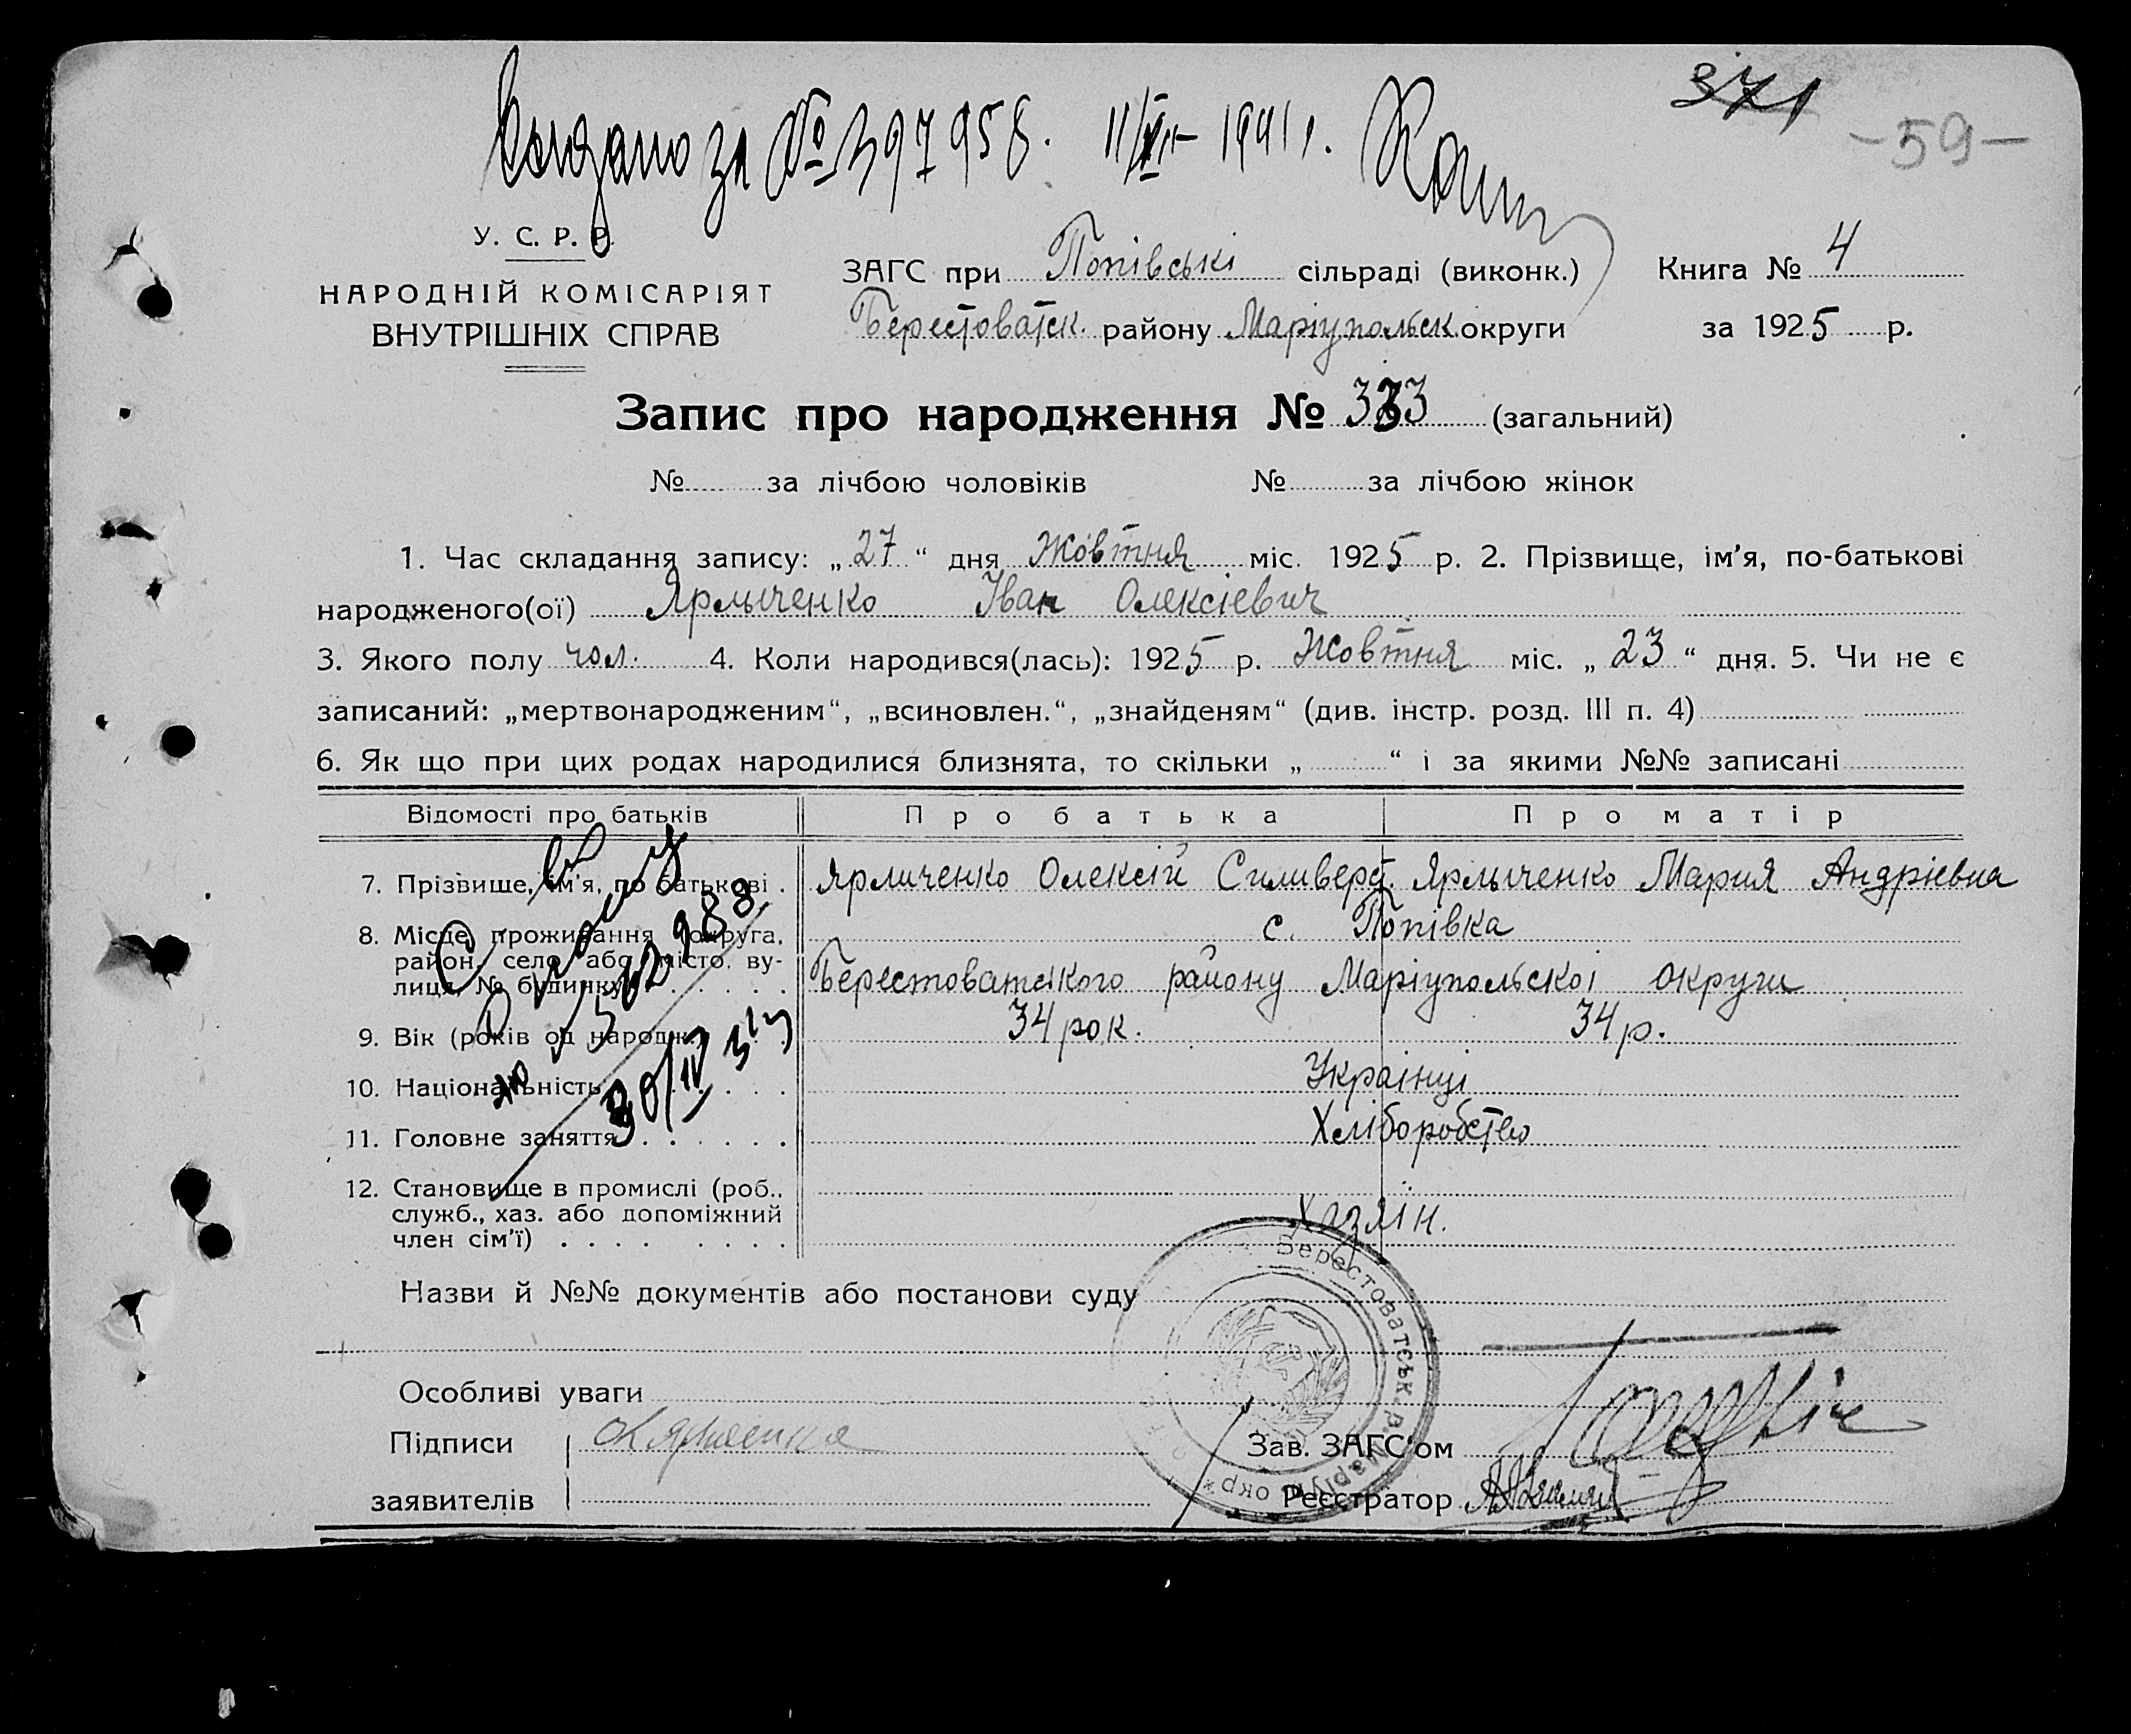 371
- 59 -
Выдано за № 397958. 11/VII - 1941 г.
У. С. Р. Р.
НАРОДНІЙ КОМІСАРІЯТ
ВНУТРІШНІХ СПРАВ
ЗАГС при Попівські сільраді (виконк.)
Берестоватск. району Маріупольськ. округи
Книга № 4
за 1925 р.
Запис про народження № 333 (загальний)
№ за лічбою чоловіків № за лічбою жінок
1. Час складання запису: „27“ дня Жовтня міс. 1925 р. 2. Прізвище, ім'я, по-батькові
народженого(ої) Ярлыченко Іван Олексіевич
3. Якого полу чол. 4. Коли народився(лась): 1925 р. Жовтня міс. „23“ дня. 5. Чи не є
записаний: „мертвонародженим“, „всиновлен.“, „знайденям“ (див. інстр. розд. III п. 4)
6. Як що при цих родах народилися близнята, то скільки „ “ і за якими №№ записані
Відомості про батьків Про батька Про матір
7. Прізвище, ім'я, по батькові . Ярличенко Олексій Силиверст. Ярлыченко Мария Андріевна
8. Місце проживання (округа, с. Попівка
район, село або місто, ву-
лиця, № будинку) Берестоватського району Маріупольскоі округи
9. Вік (років од народж.) 34 рок. 34 р.
10. Національність Украінці
11. Головне заняття Хліборобство
12. Становище в промислі (роб.,
служб., хаз. або допоміжний Хазяїн.
член сім'ї)
30/IV 31
Назви й №№ документів або постанови суду
Особливі уваги
Підписи
заявителів
Зав. ЗАГС'ом
Реєстратор
Берестоватськ. р. Маріуп. окр.